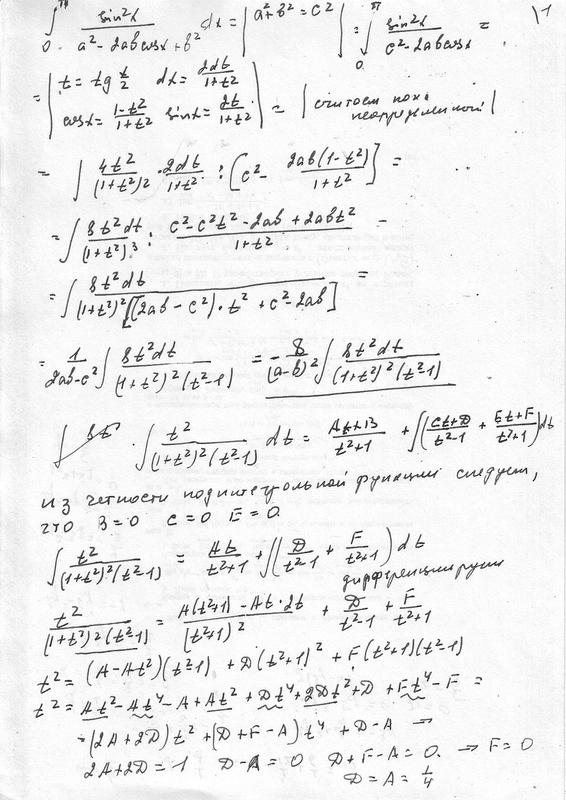 \1
∫₀^π sin²x / (a² - 2ab cosx + b²) dx = | a² + b² = c² | = ∫₀^π sin²x / (c² - 2ab cosx) =
= | t = tg x/2 dx = 2dt/(1+t²) cosx = (1-t²)/(1+t²) sinx = 2t/(1+t²) | = | считаем пока неопределенный |
= ∫ 4t²/(1+t²)² · 2dt/(1+t²) : [c² - 2ab(1-t²)/(1+t²)] =
= ∫ 8t²dt/(1+t²)³ : (c² - c²t² - 2ab + 2abt²)/(1+t²) =
= ∫ 8t²dt / ((1+t²)²[(2ab - c²)·t² + c² - 2ab]) =
= 1/(2ab-c²) ∫ 8t²dt / ((1+t²)²(t²-1)) = - 8/(a-b)² ∫ 8t²dt / ((1+t²)²(t²-1))
∫ t² / ((1+t²)²(t²-1)) dt = (At+B)/(t²+1) + ∫((Ct+D)/(t²-1) + (Et+F)/(t²+1))dt
из четности подинтегральной функции следует,
что B=0 C=0 E=0
∫ t² / ((1+t²)²(t²-1)) = At/(t²+1) + ∫(D/(t²-1) + F/(t²+1)) dt
дифференцируем
t² / ((1+t²)²(t²-1)) = (A(t²+1) - At·2t)/(t²+1)² + D/(t²-1) + F/(t²+1)
t² = (A-At²)(t²-1) + D(t²+1)² + F(t²+1)(t²-1)
t² = At² - At⁴ - A + At² + Dt⁴ + 2Dt² + D + Ft⁴ - F =
= (2A+2D)t² + (D+F-A)t⁴ + D-A →
2A+2D = 1 D-A = 0 D+F-A = 0. → F=0
D = A = 1/4